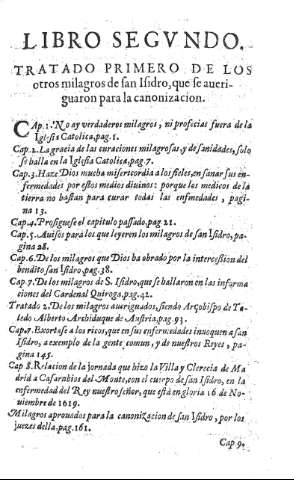 LIBRO SEGVNDO.
TRATADO PRIMERO DE LOS
otros milagros de san Isidro, que se aueri-
guaron para la canonizacion.
CAp. 1. No ay verdaderos milagros, ni profecias fuera de la
Iglesia Catolica, pag. 1.
Cap. 2. La gracia de las curaciones milagrosas, y de sanidades, solo
se halla en la Iglesia Catolica, pag. 7.
Cap. 3. Haze Dios mucha misercordia a los fieles, en sanar sus en-
fermedades por estos medios diuinos: porque los medicos de la
tierra no bastan para curar todas las enfmedades, pagi-
na 13.
Cap. 4. Prosiguese el capitulo passado. pag 21.
Cap. 5. Auisos para los que leyeren los milagros de san Isidro, pa-
gina 28.
Cap. 6. De los milagros que Dios ha obrado por la intercession del
bendito san Isidro. pag. 38.
Cap. 7. De los milagros de S. Isidro, que se ballaron en las informa
ciones del Cardenal Quiroga. pag. 42.
Tratado 2. De los milagros aueriguados, siendo Arçobispo de To-
ledo Alberto Archiduque de Austria. pag. 93.
Cap. 7. Exortase a los ricos, que en sus enfermedades inuoquen a san
Isidro, a exemplo de la gente comun, y de nuestros Reyes, pa-
gina 145.
Cap 8. Relacion de la jornada que hizo la Villa y Clerecia de Ma-
drid a Casarubios del Monte, con el cuerpo de san Isidro, en la
enfermedad del Rey nuestro señor, que està en gloria 16 de No-
uiembre de 1619.
Milagros aprouados para la canonizacion de san Isidro, por los
juezes della. pag. 161.
Cap 9.